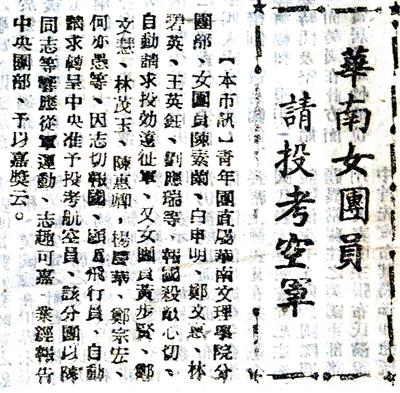 華南女團員
請投考空軍
【本市訊】青年團直屬華南文理學院分
團部、女團員陳素蘭、白申明、鄭文恩、林
碧英、王英鈺、劉應瑞等、報國殺敵心切、
自動請求投効遠征軍、又女團員黃步賢、鄭
文慧、林茂玉、陳惠卿、楊慶華、鄭宗宏、
何亦愚等、因志切報國、願為飛行員、自動
請求轉呈中央准予投考航空員、該分團以陳
同志等響應從軍運動、志趣可嘉、業經報告
中央團部、予以嘉獎云。